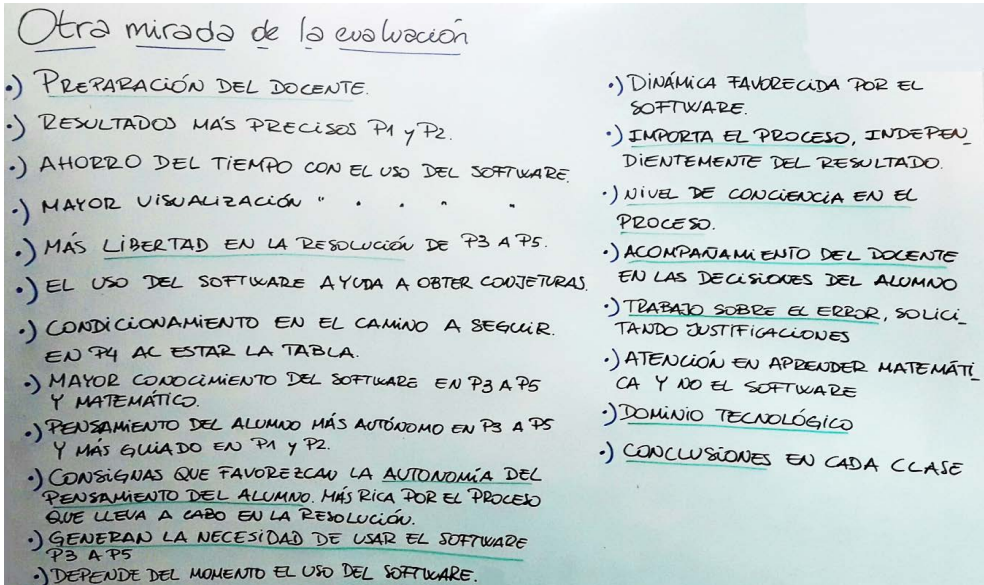 Otra mirada de la evaluación
•) PREPARACIÓN DEL DOCENTE.
•) RESULTADOS MÁS PRECISOS P1 y P2.
•) AHORRO DEL TIEMPO CON EL USO DEL SOFTWARE.
•) MAYOR VISUALIZACIÓN " . . " "
•) MÁS LIBERTAD EN LA RESOLUCIÓN DE P3 A P5.
•) EL USO DEL SOFTWARE AYUDA A OBTER CONJETURAS.
•) CONDICIONAMIENTO EN EL CAMINO A SEGUIR.
EN P4 AL ESTAR LA TABLA.
•) MAYOR CONOCIMIENTO DEL SOFTWARE EN P3 A P5
Y MATEMÁTICO.
•) PENSAMIENTO DEL ALUMNO MÁS AUTÓNOMO EN P3 A P5
Y MÁS GUIADO EN P1 y P2.
•) CONSIGNAS QUE FAVOREZCAN LA AUTONOMÍA DEL
PENSAMIENTO DEL ALUMNO. MÁS RICA POR EL PROCESO
QUE LLEVA A CABO EN LA RESOLUCIÓN.
•) GENERAN LA NECESIDAD DE USAR EL SOFTWARE
P3 A P5
•) DEPENDE DEL MOMENTO EL USO DEL SOFTWARE.
•) DINÁMICA FAVORECIDA POR EL
SOFTWARE.
•) IMPORTA EL PROCESO, INDEPEN_
DIENTEMENTE DEL RESULTADO.
•) NIVEL DE CONCIENCIA EN EL
PROCESO.
•) ACOMPAÑAMIENTO DEL DOCENTE
EN LAS DECISIONES DEL ALUMNO
•) TRABAJO SOBRE EL ERROR, SOLICI_
TANDO JUSTIFICACIONES
•) ATENCIÓN EN APRENDER MATEMÁTI_
CA Y NO EL SOFTWARE
•) DOMINIO TECNOLÓGICO
•) CONCLUSIONES EN CADA CLASE